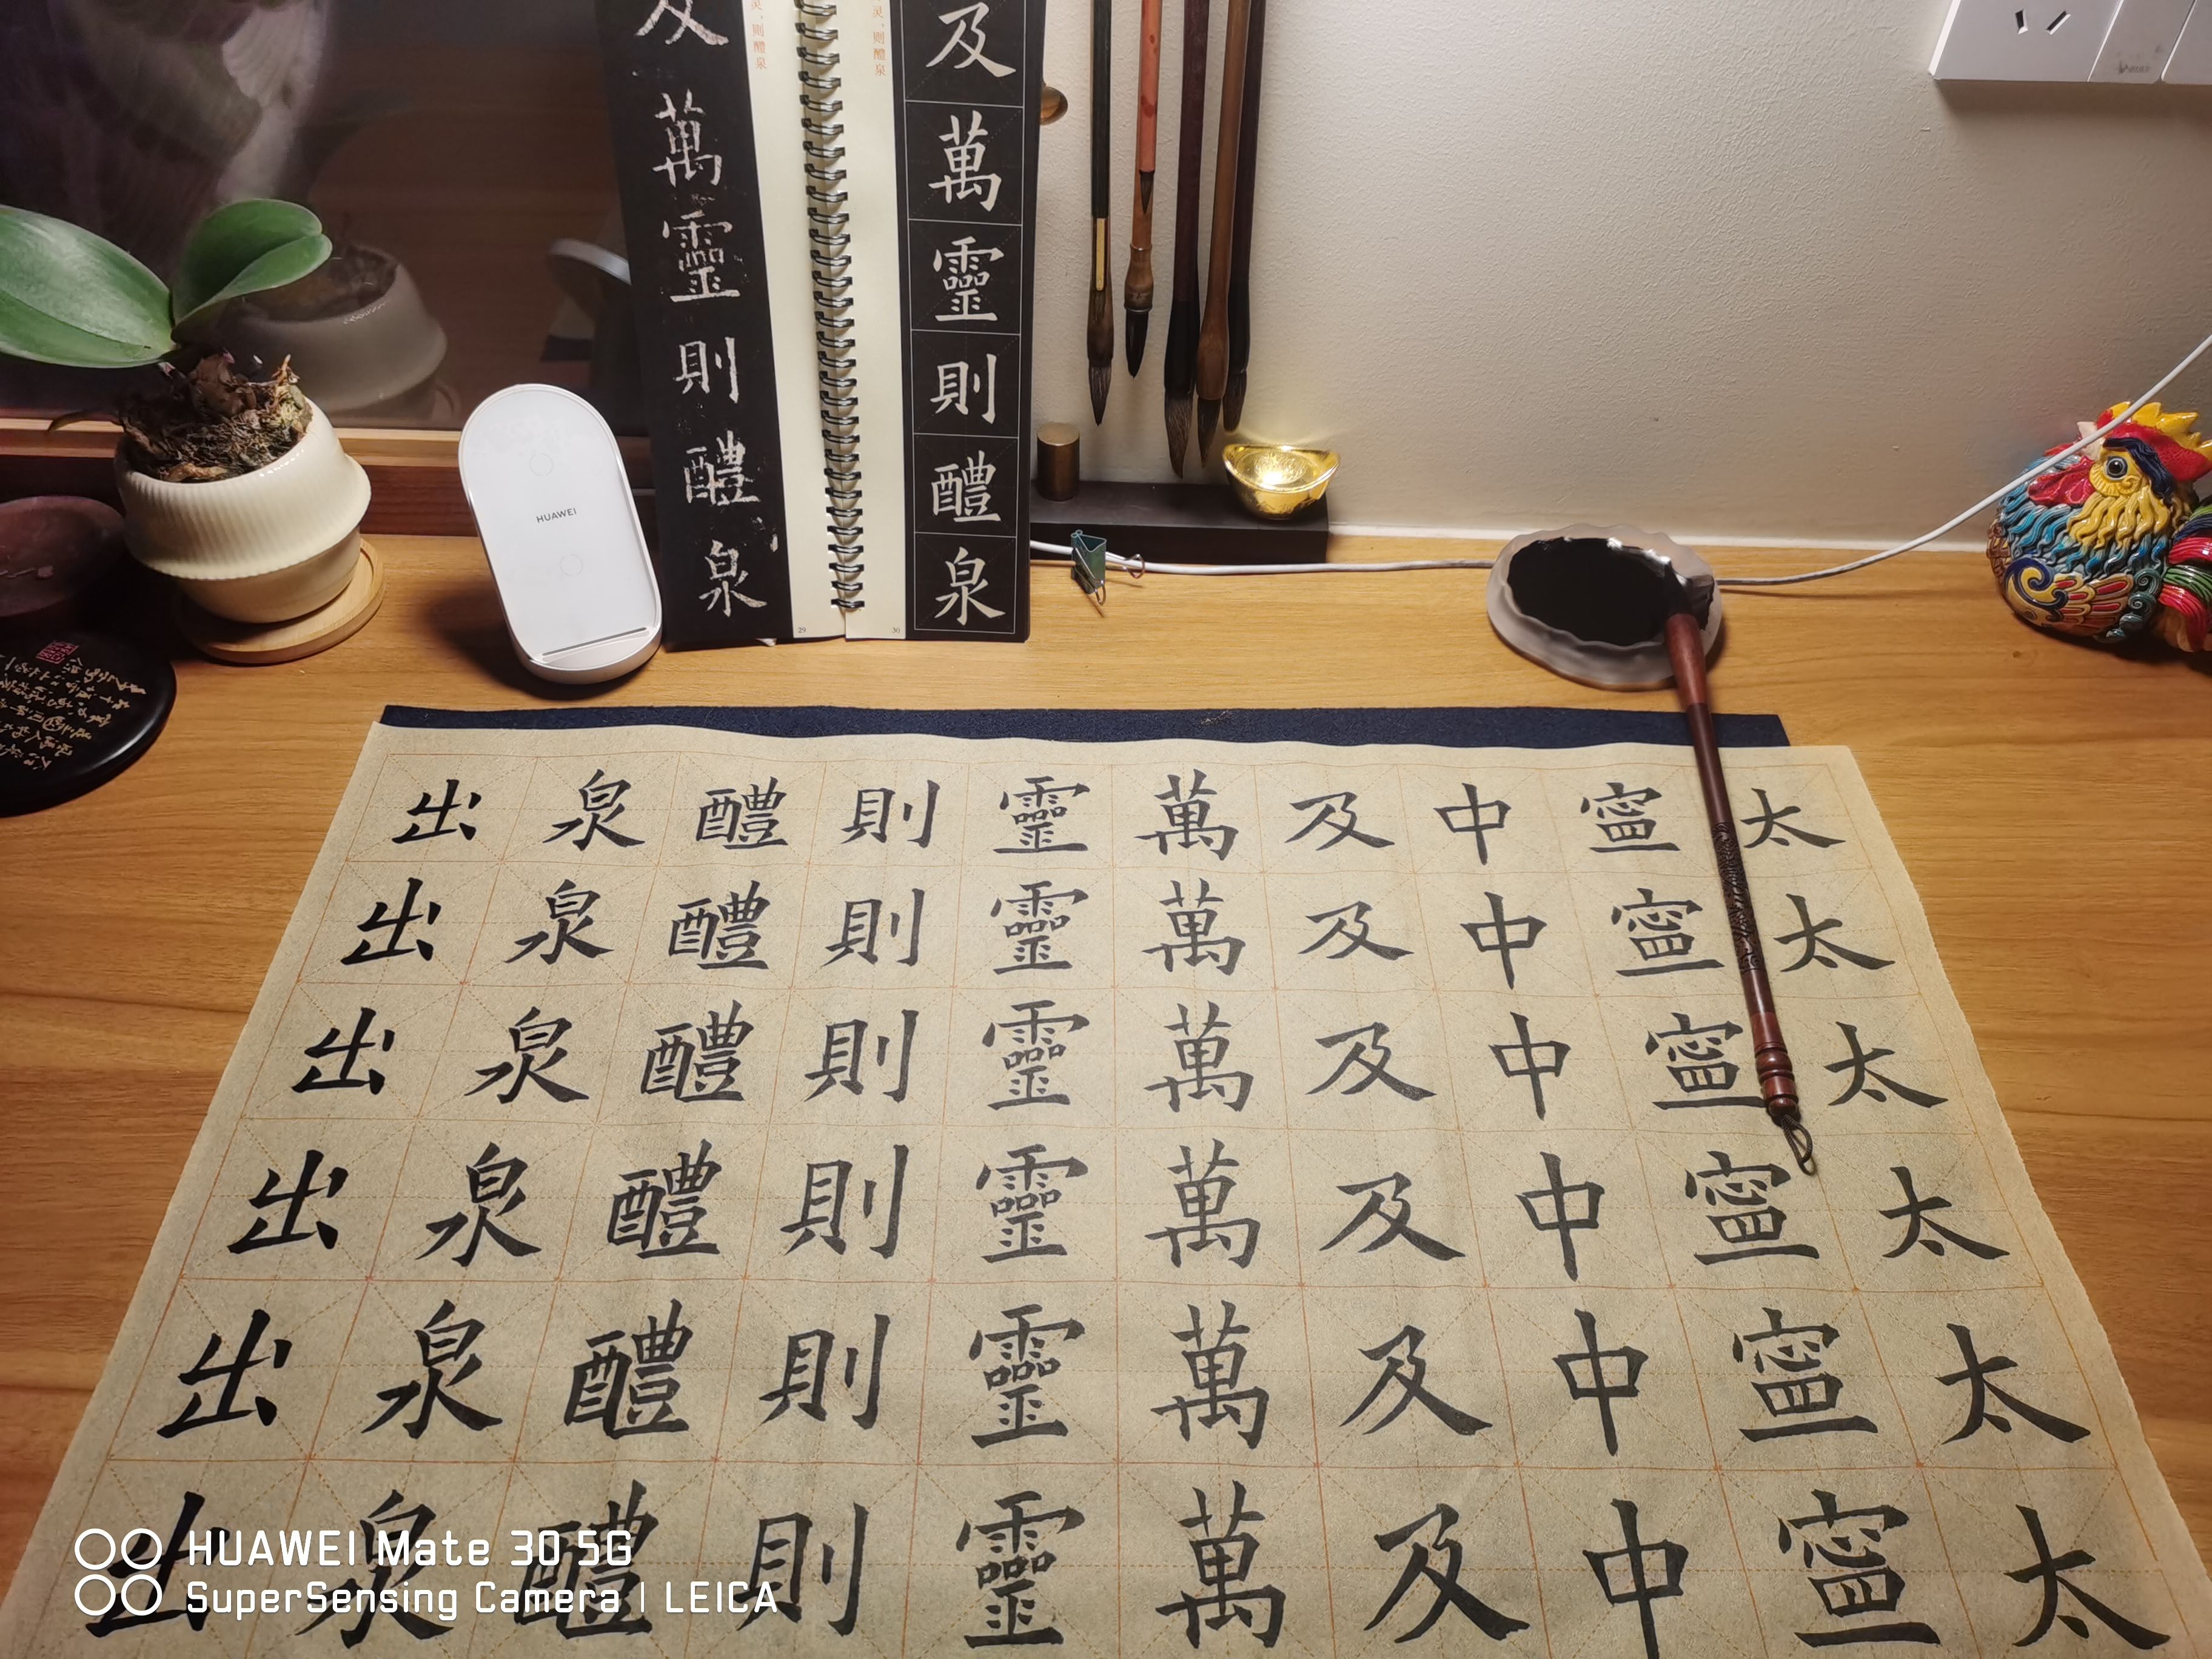 及萬靈則醴泉
灵,则醴泉
灵,则醴泉
及萬靈則醴泉
29
30
HUAWEI
太太太太太太
寧寧寧寧寧寧
中中中中中中
及及及及及及
萬萬萬萬萬萬
靈靈靈靈靈靈
則則則則則則
醴醴醴醴醴醴
泉泉泉泉泉泉
出出出出出出
HUAWEI Mate 30 5G
SuperSensing Camera | LEICA